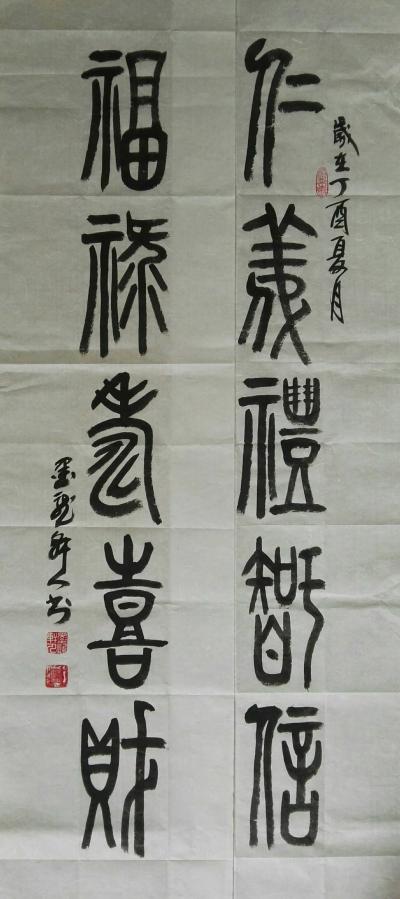 歲在丁酉夏月
仁義禮智信
福祿壽喜財
墨龍軒人书